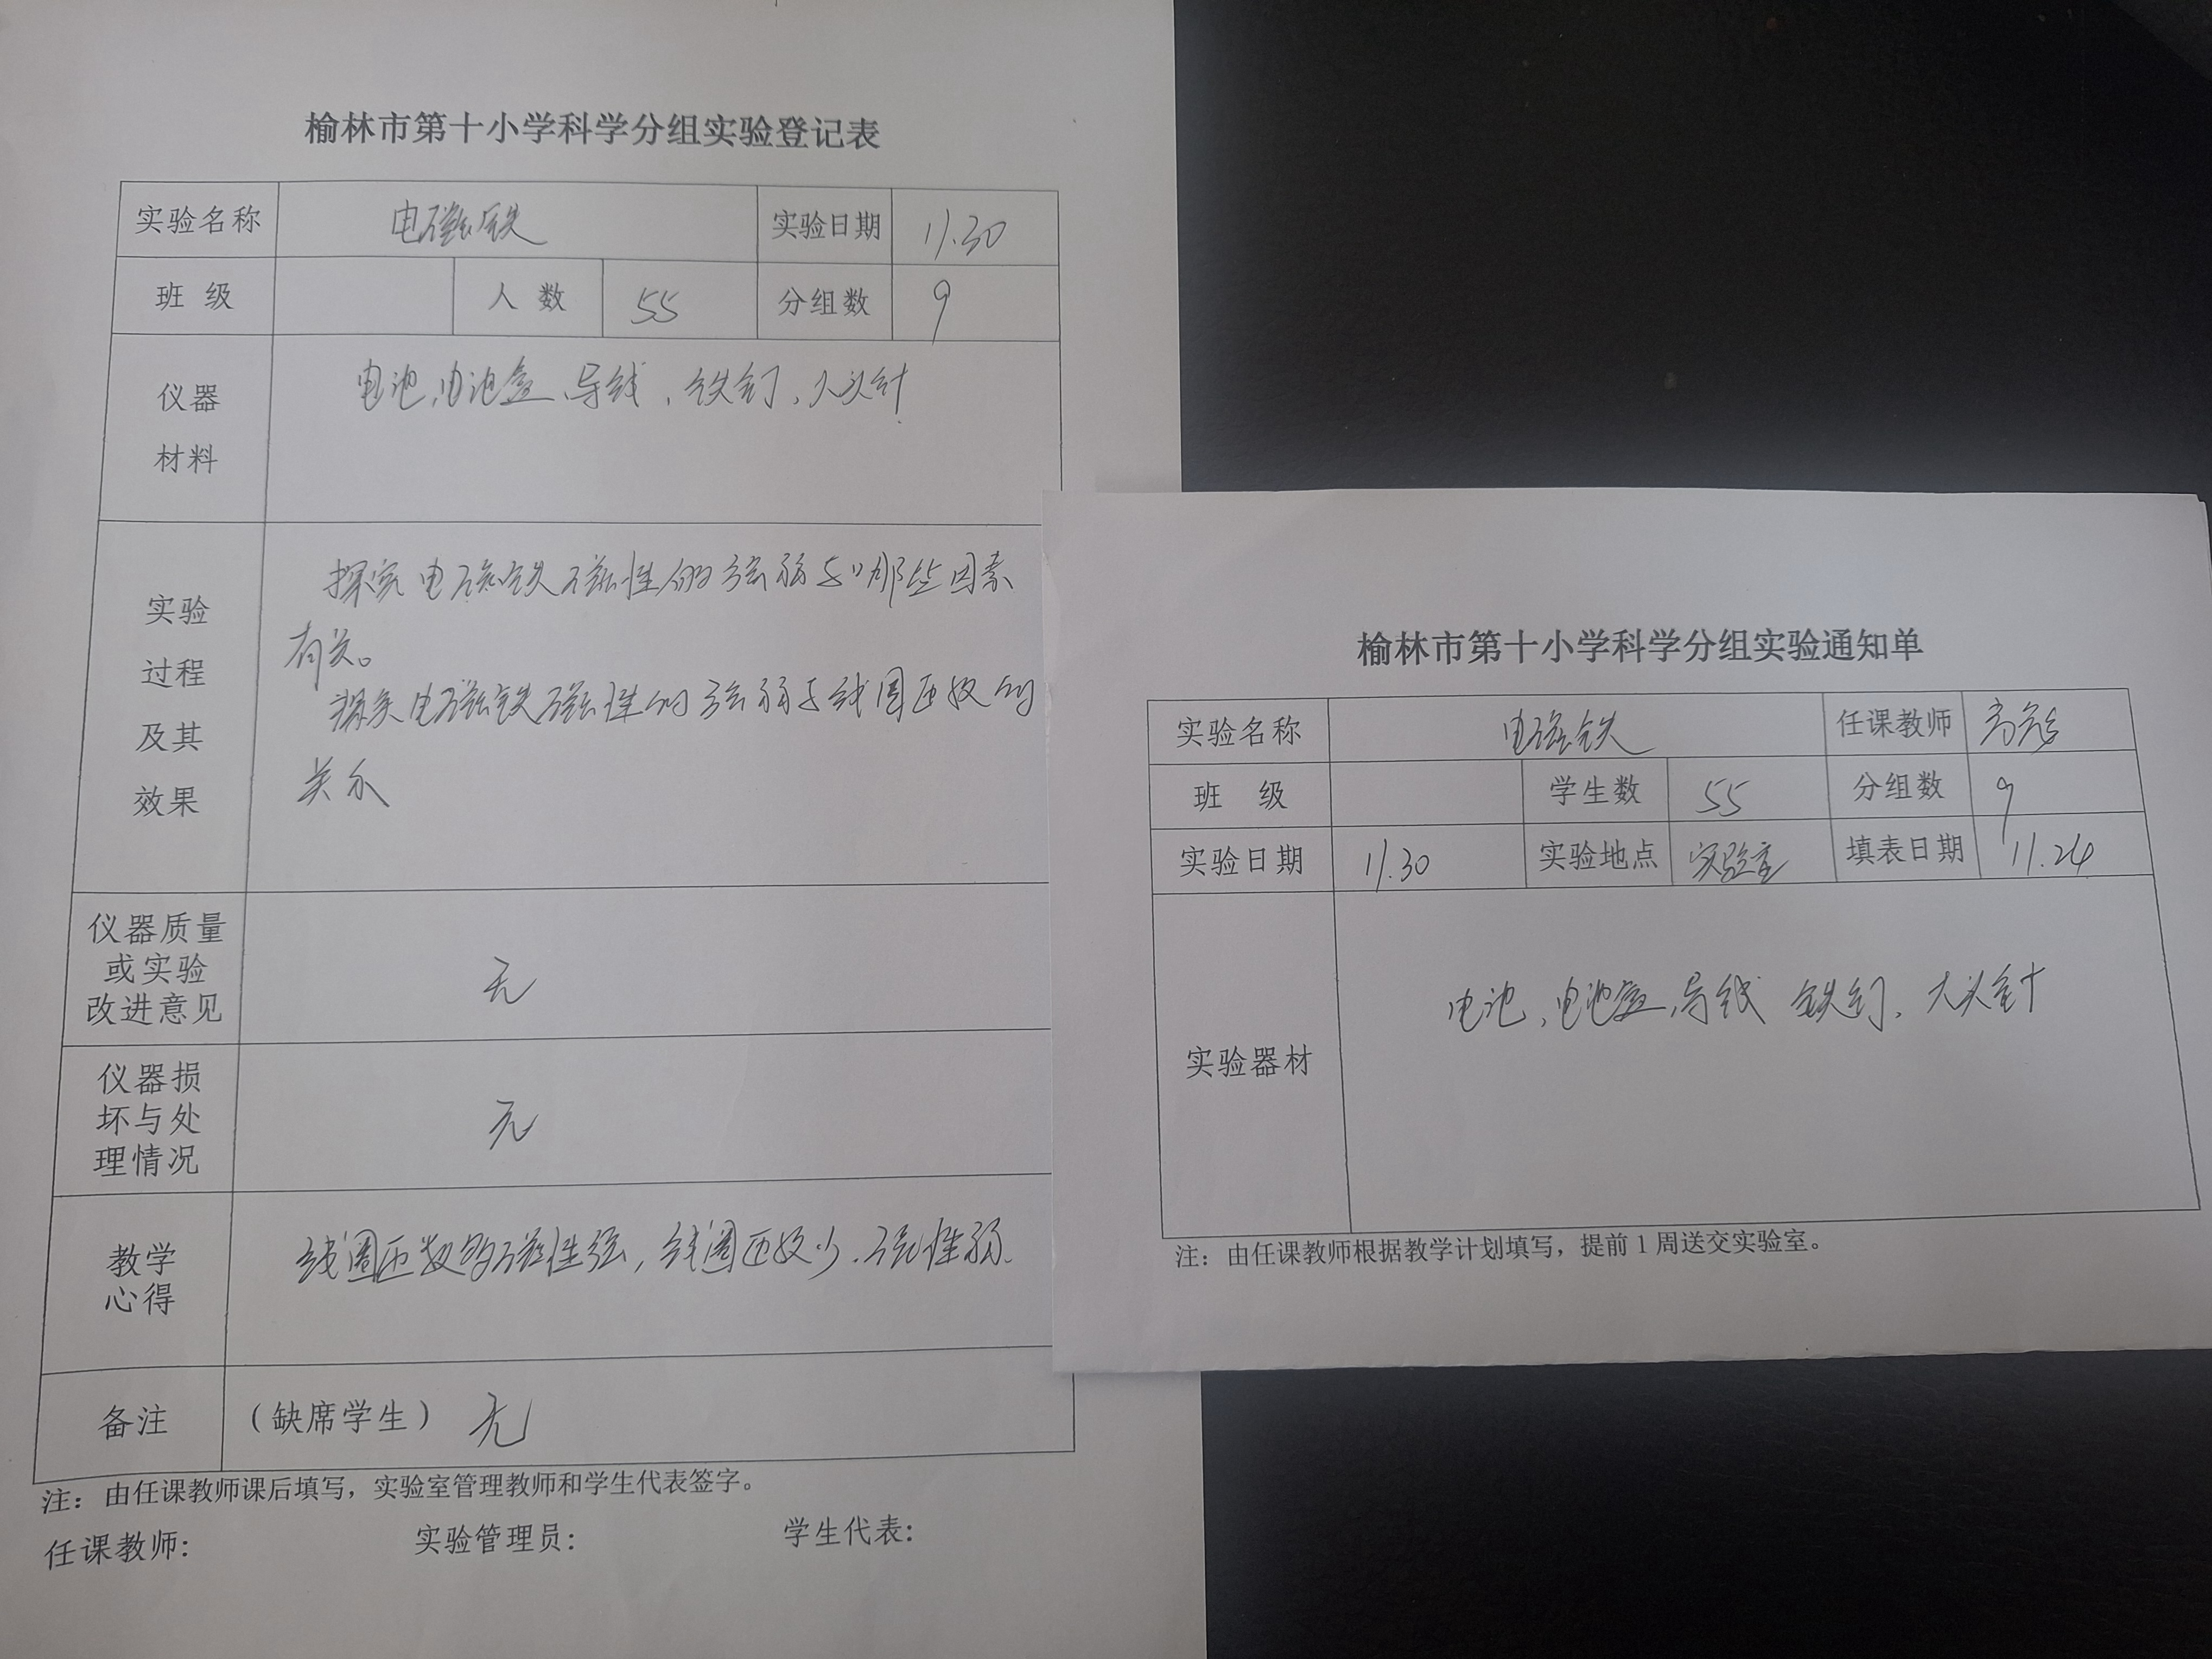 榆林市第十小学科学分组实验登记表
实验名称 电磁铁 实验日期 11.30
班 级 人 数 55 分组数 9
仪器
材料
电池、电池盒、导线、铁钉、大头针
实验
过程
及其
效果
探究电磁铁磁性的强弱与哪些因素
有关。
探究电磁铁磁性的强弱与线圈匝数的
关系
仪器质量
或实验
改进意见
无
仪器损
坏与处
理情况
无
教学
心得
线圈匝数多磁性强，线圈匝数少.磁性弱.
备注 （缺席学生） 无
注：由任课教师课后填写，实验室管理教师和学生代表签字。
任课教师: 实验管理员: 学生代表:
榆林市第十小学科学分组实验通知单
实验名称 电磁铁 任课教师
班 级 学生数 55 分组数 9
实验日期 11.30 实验地点 实验室 填表日期 11.24
实验器材
电池、电池盒、导线 铁钉、大头针
注：由任课教师根据教学计划填写，提前1周送交实验室。